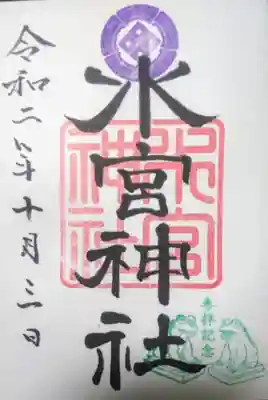 水宮神社
水宮
神社
令和二年十月三日
参拝記念